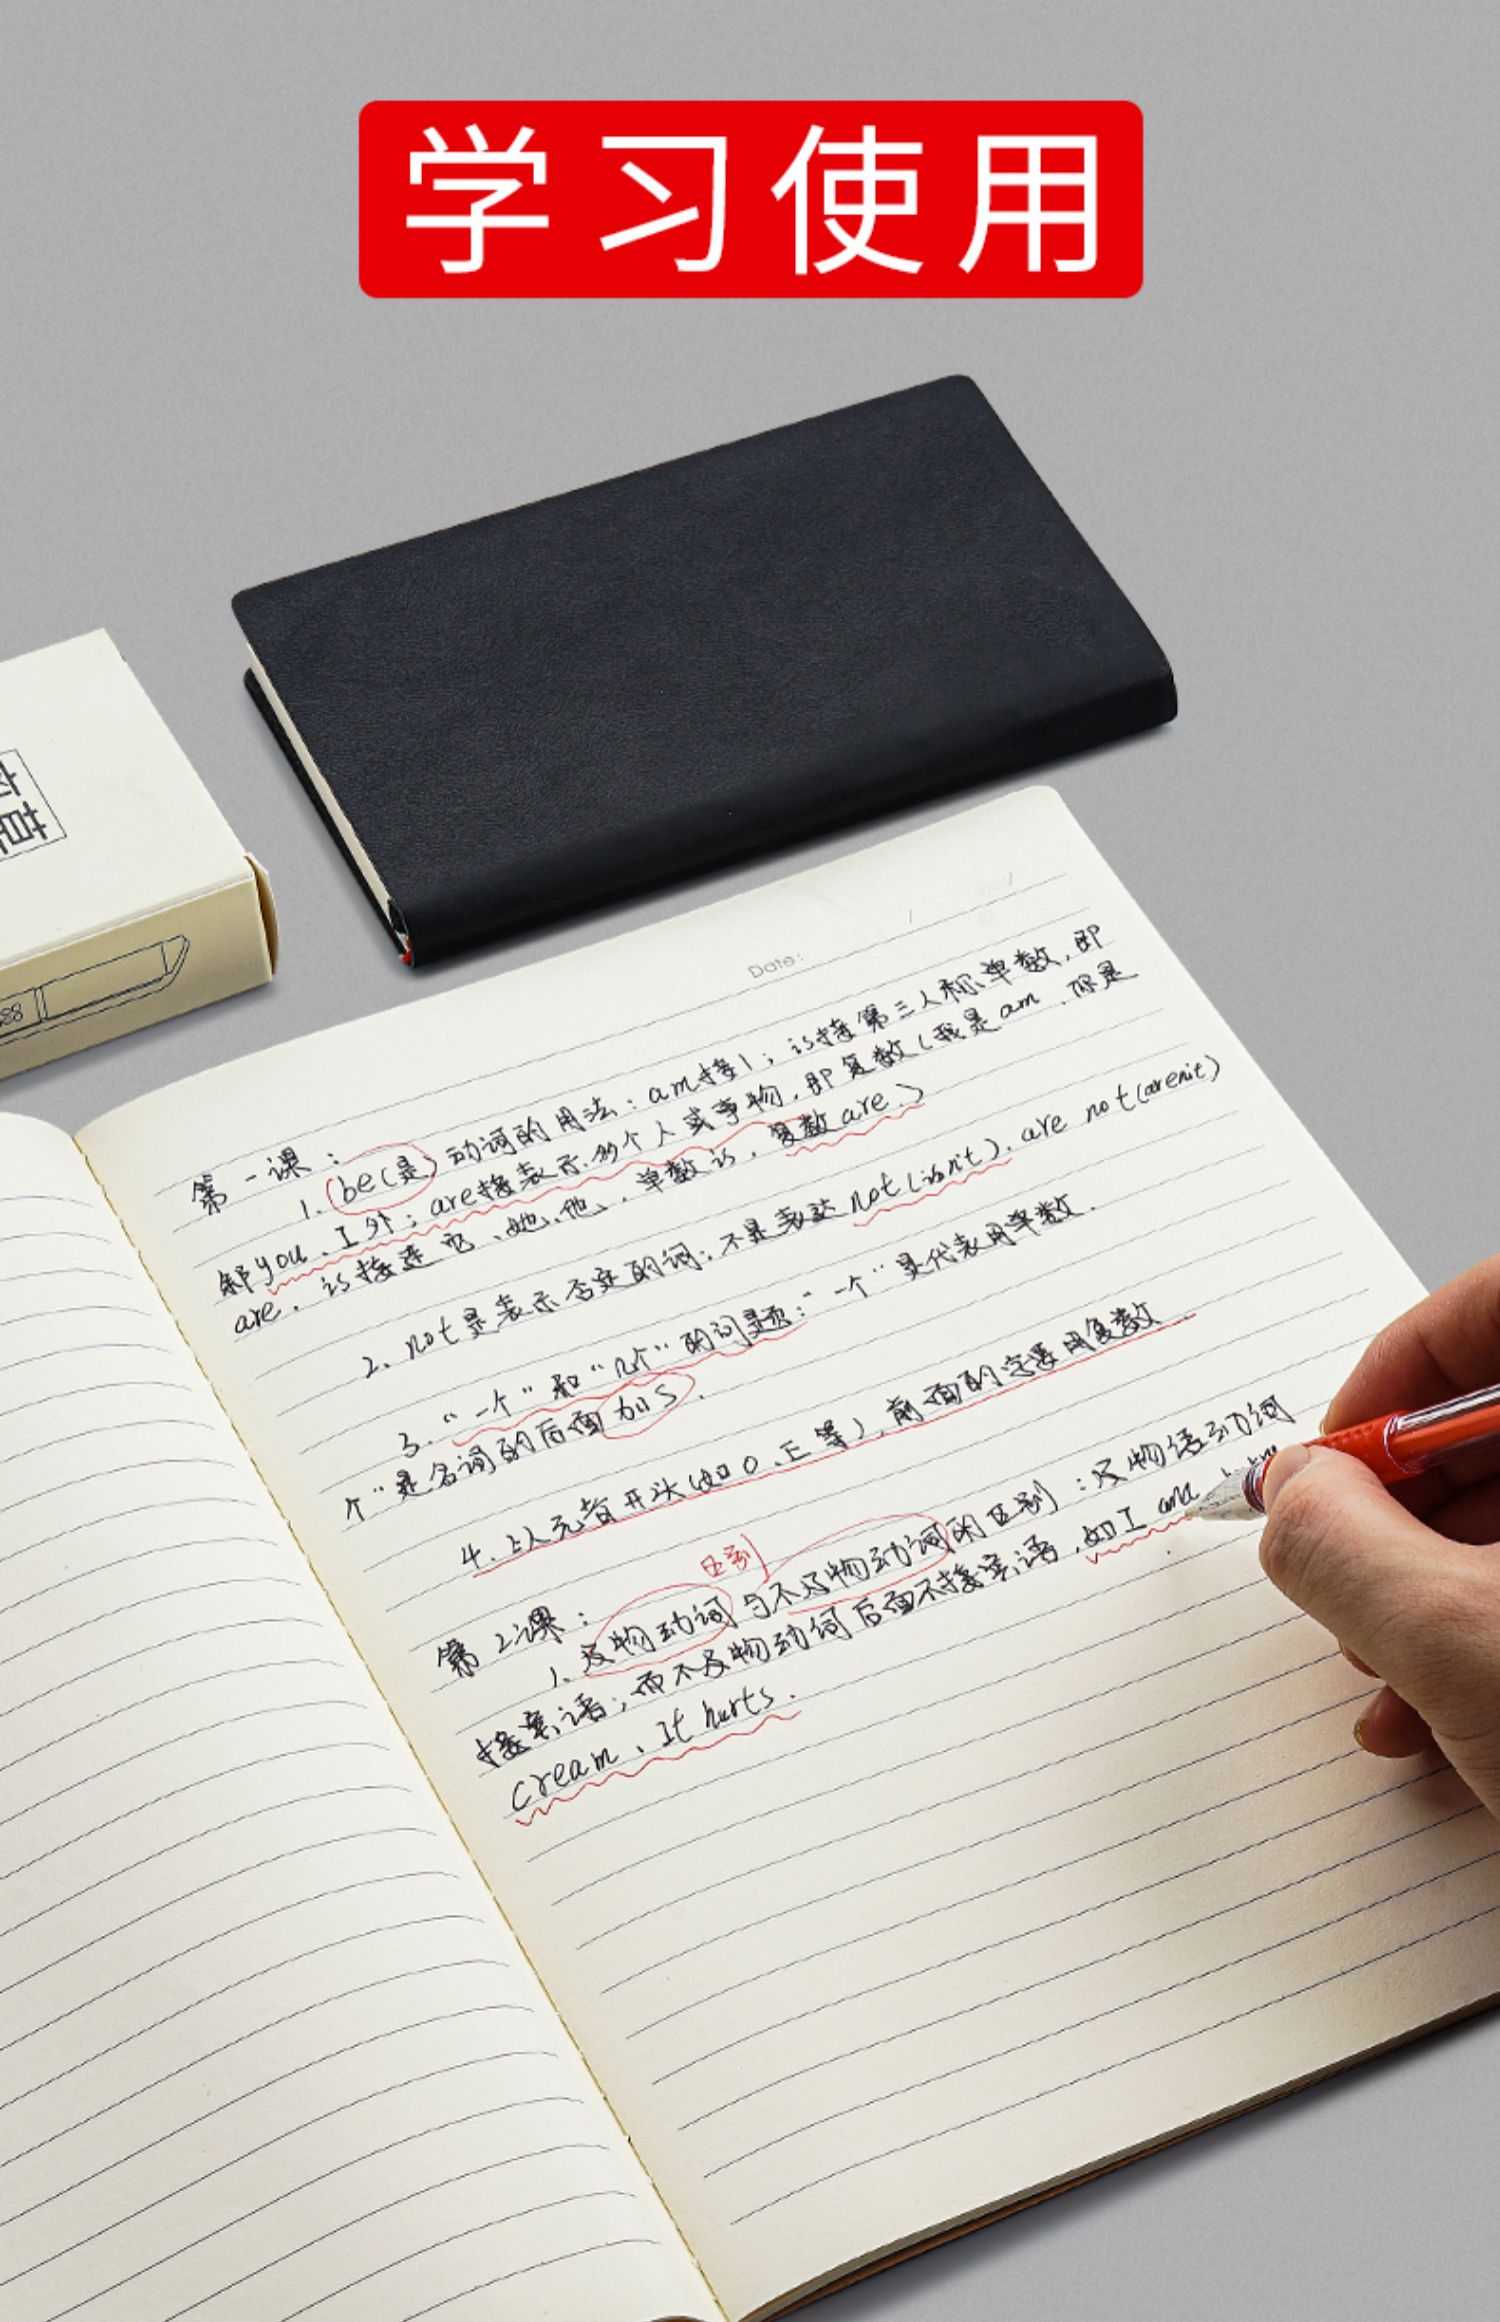 学习使用
Date:
第一课：
1. be(是)动词的用法：am接I；is接第三人称单数，即
都you、I外；are接表示多个人或事物，即复数(我是am，你是
are，is接连它、她、他，单数is，复数are.)
2. not是表示否定的词；不是表达not(isn't). are not(aren't)
3. “一个”和“几个”的问题：“一个”是代表用单数.
个”是名词的后面加s.
4. 以元音开头(如O、E等)，前面的字要用复数
区别
第2课：
1. 及物动词与不及物动词的区别：及物语动词
接宾语；而不及物动词后面不接宾语，如I and
cream、It hurts.